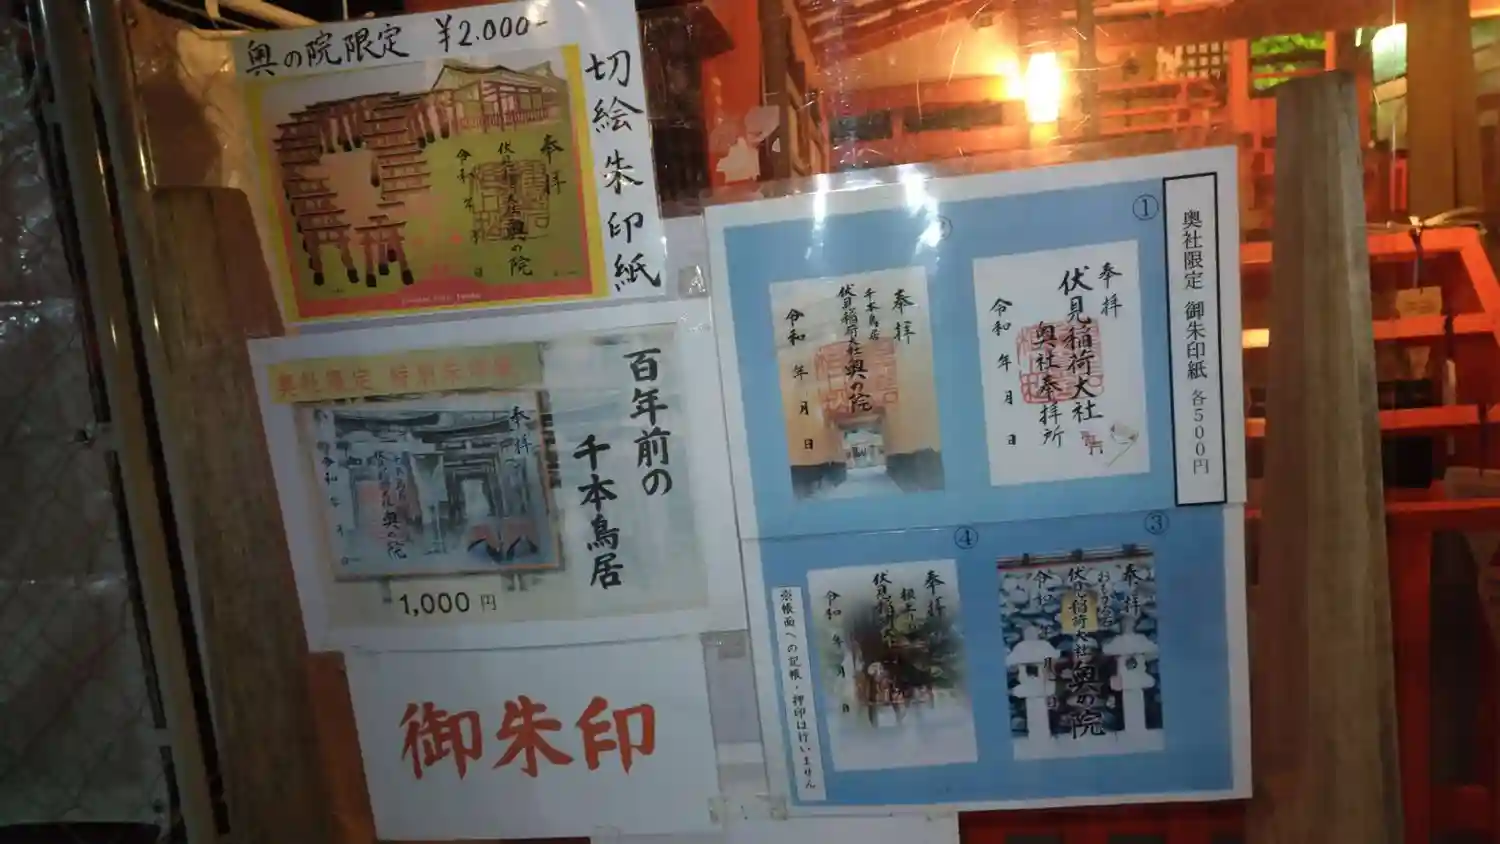 奥の院限定 ¥2.000-
切絵朱印紙
奉拝
伏見稲荷大社 奥の院
令和 年 月 日
奥社限定 特別朱印紙
百年前の
千本鳥居
奉拝
奥の院
令和
1,000円
御朱印
奥社限定 御朱印紙 各500円
①
奉拝
伏見稲荷大社
奥社奉拝所
令和 年 月 日
②
奉拝
千本鳥居
伏見稲荷大社 奥の院
令和 年 月 日
③
奉拝
おもかる石
伏見稲荷大社 奥の院
令和 年 月 日
④
奉拝
伏見稲荷大社
令和 年 月 日
※帳面への記帳・押印は行いません